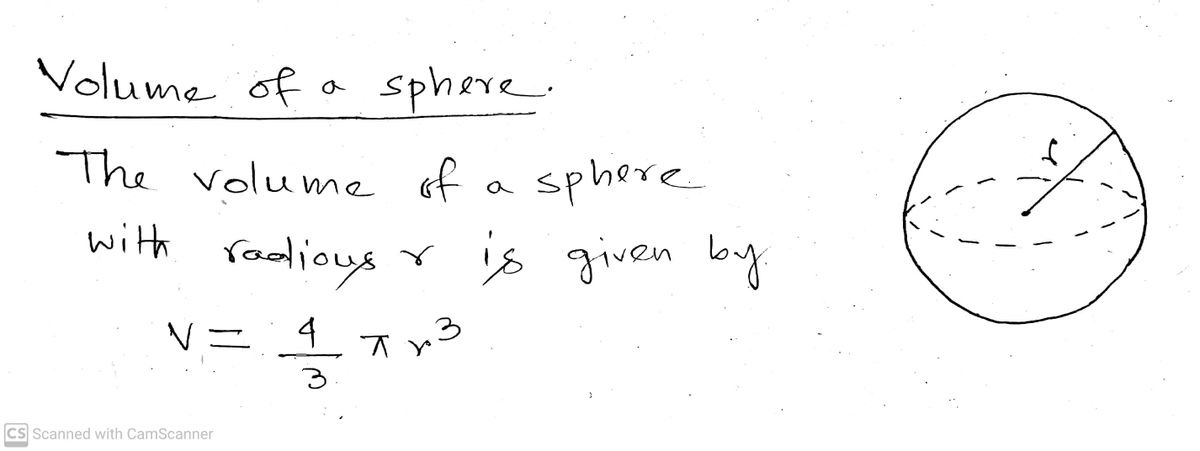 Volume of a sphere.
The volume of a sphere
with radious r is given by
V = 4/3 π r³
r
CS Scanned with CamScanner